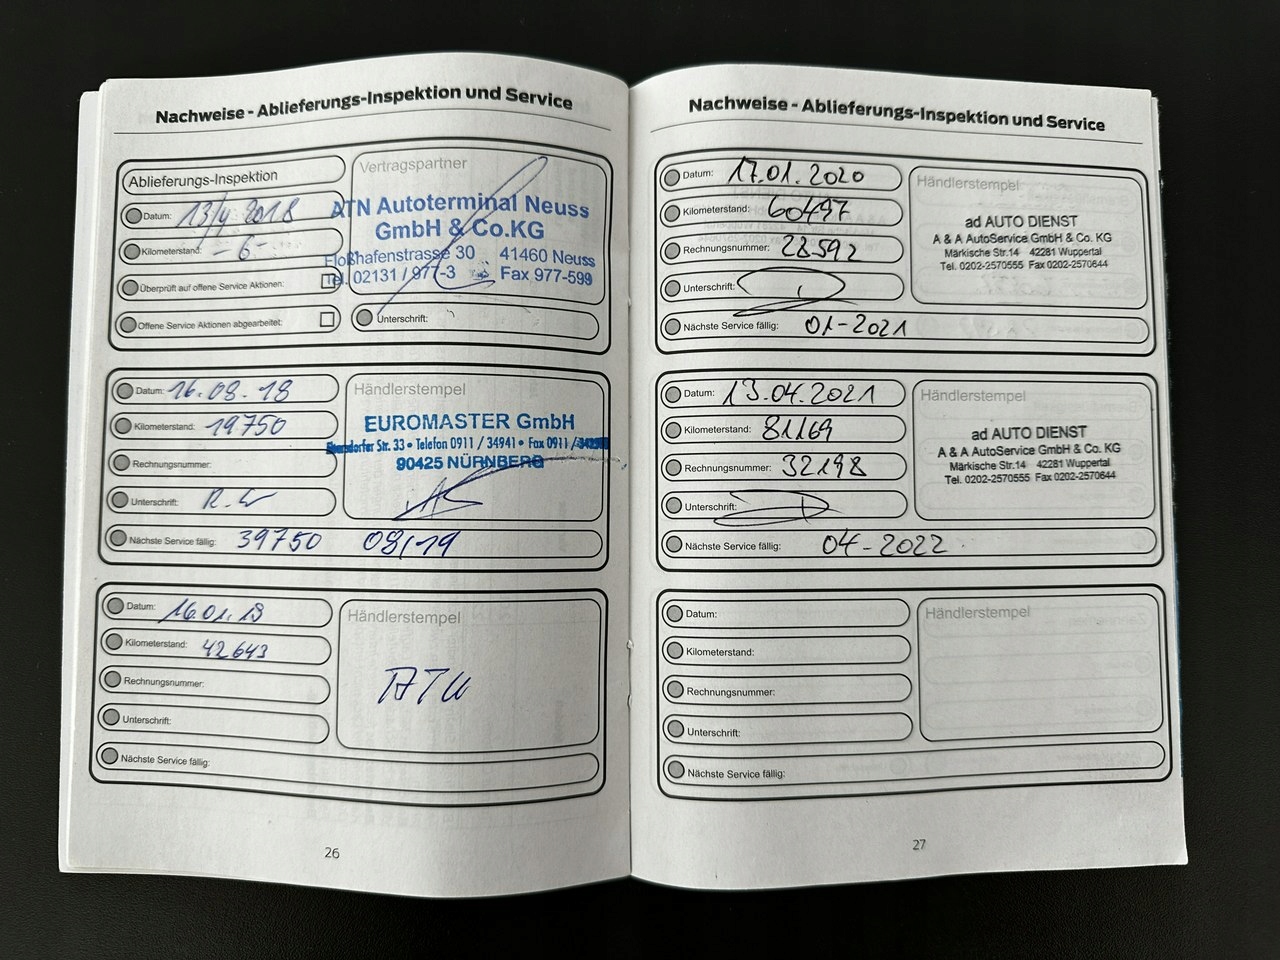 Nachweise - Ablieferungs-Inspektion und Service
Ablieferungs-Inspektion
Datum: 13/4 2018
Kilometerstand: - 6 -
Überprüft auf offene Service Aktionen:
Offene Service Aktionen abgearbeitet:
Vertragspartner
ATN Autoterminal Neuss
GmbH & Co.KG
Floßhafenstrasse 30 41460 Neuss
Tel. 02131 / 977-3 Fax 977-599
Unterschrift:
Datum: 16.08.18
Kilometerstand: 19750
Rechnungsnummer:
Unterschrift:
Nächste Service fällig: 39750 08/19
Händlerstempel
EUROMASTER GmbH
Str. 33 • Telefon 0911 / 34941 • Fax 0911 /
90425 NÜRNBERG
Datum: 16.01.19
Kilometerstand: 42643
Rechnungsnummer:
Unterschrift:
Nächste Service fällig:
Händlerstempel
ATU
26
Nachweise - Ablieferungs-Inspektion und Service
Datum: 17.01.2020
Kilometerstand: 60497
Rechnungsnummer: 28592
Unterschrift:
Nächste Service fällig: 01-2021
Händlerstempel
ad AUTO DIENST
A & A AutoService GmbH & Co. KG
Märkische Str.14 42281 Wuppertal
Tel. 0202-2570555 Fax 0202-2570644
Datum: 13.04.2021
Kilometerstand: 81169
Rechnungsnummer: 32198
Unterschrift:
Nächste Service fällig: 04-2022
Händlerstempel
ad AUTO DIENST
A & A AutoService GmbH & Co. KG
Märkische Str.14 42281 Wuppertal
Tel. 0202-2570555 Fax 0202-2570644
Datum:
Kilometerstand:
Rechnungsnummer:
Unterschrift:
Nächste Service fällig:
Händlerstempel
27